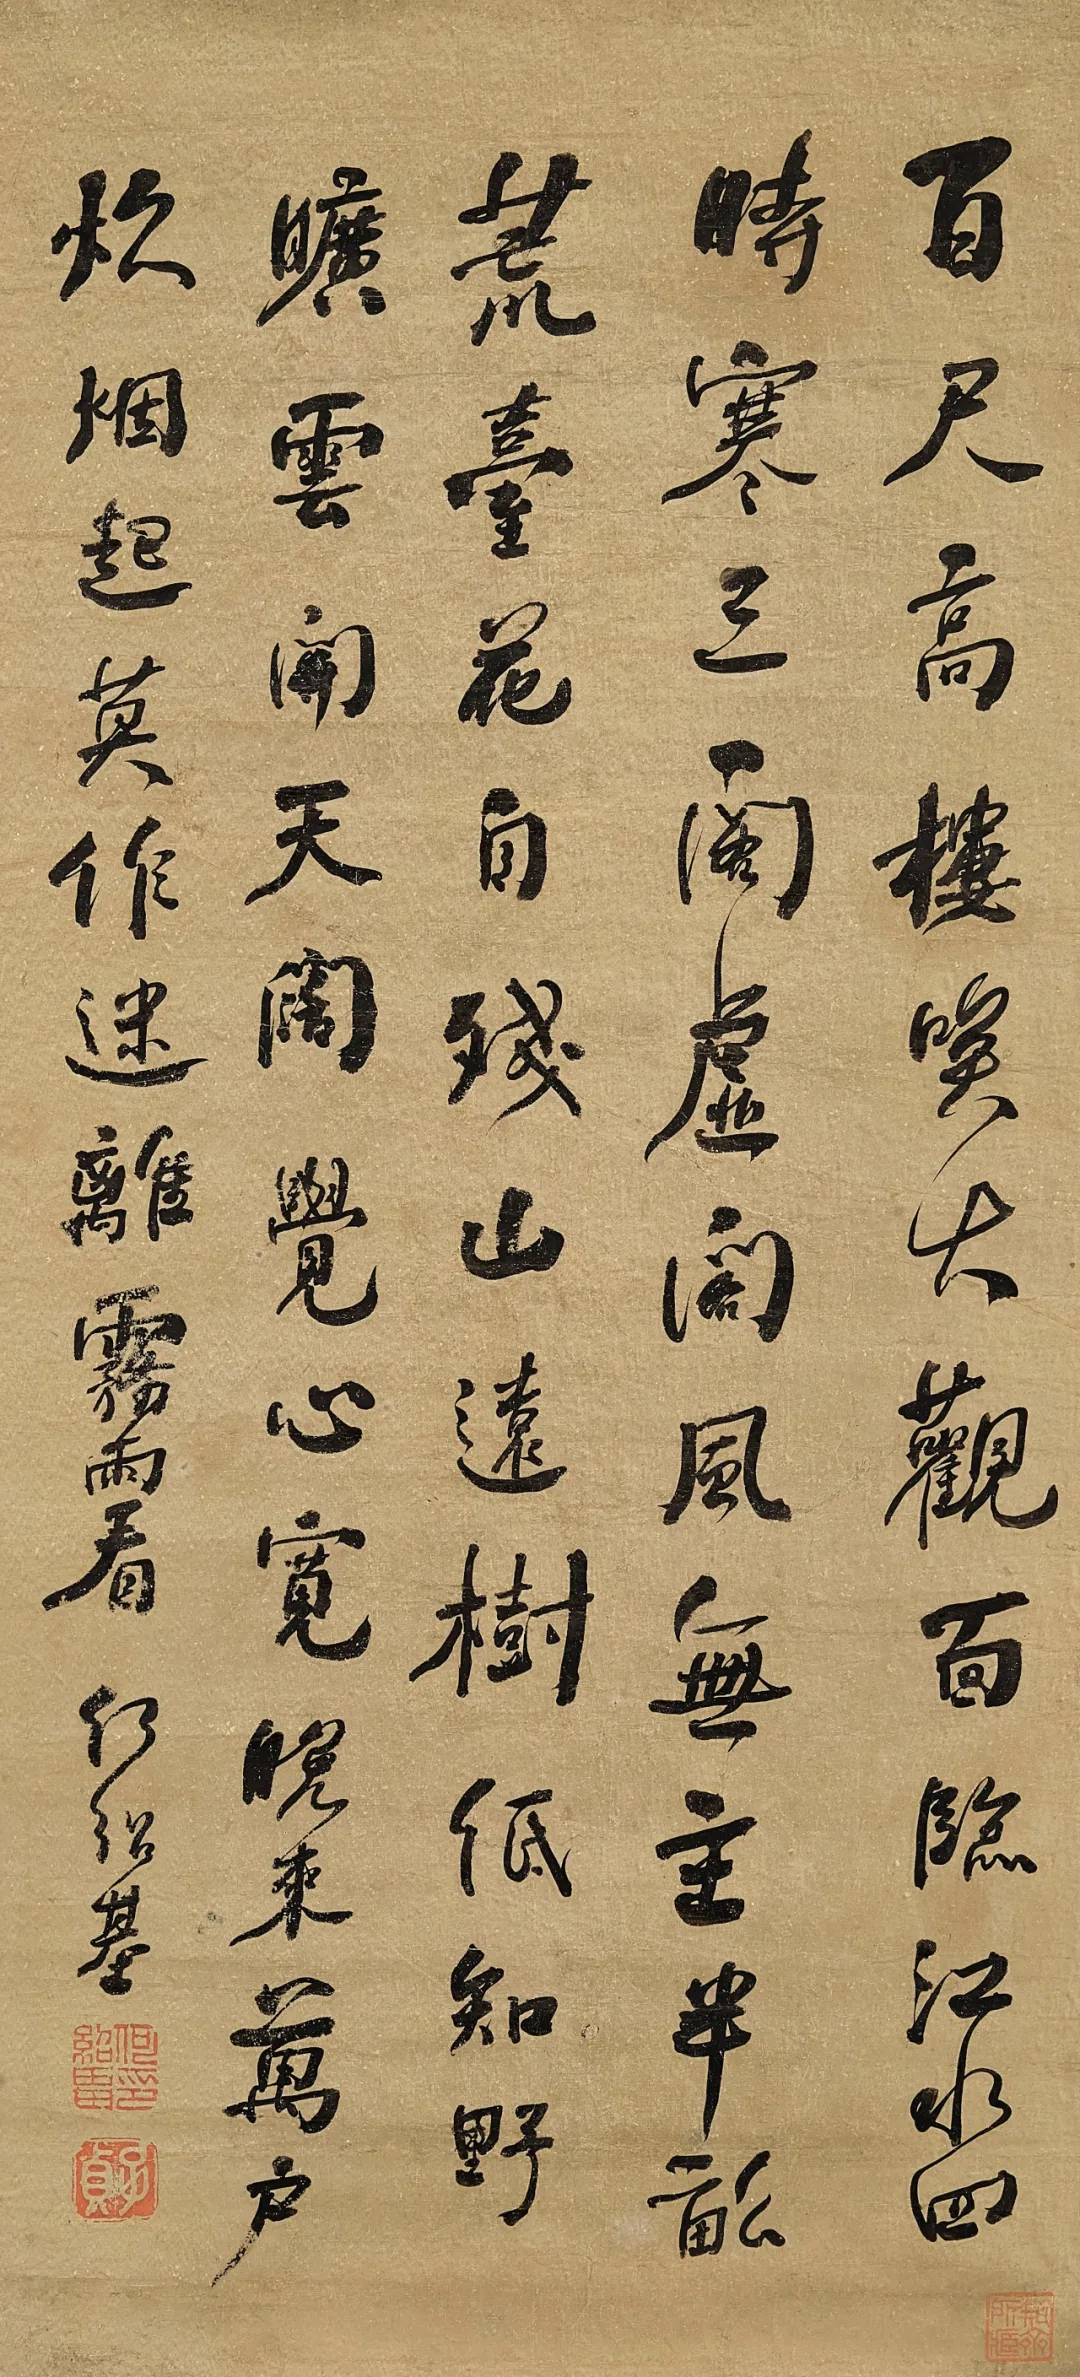 百尺高樓喚大觀面臨江水四
時寒三虛閣風無主半畝
荒臺花自殘山遠樹低知野
曠雲開天闊覺心寬晚來萬戶
炊烟起莫作迷離霧雨看
何紹基
何紹基印
子貞